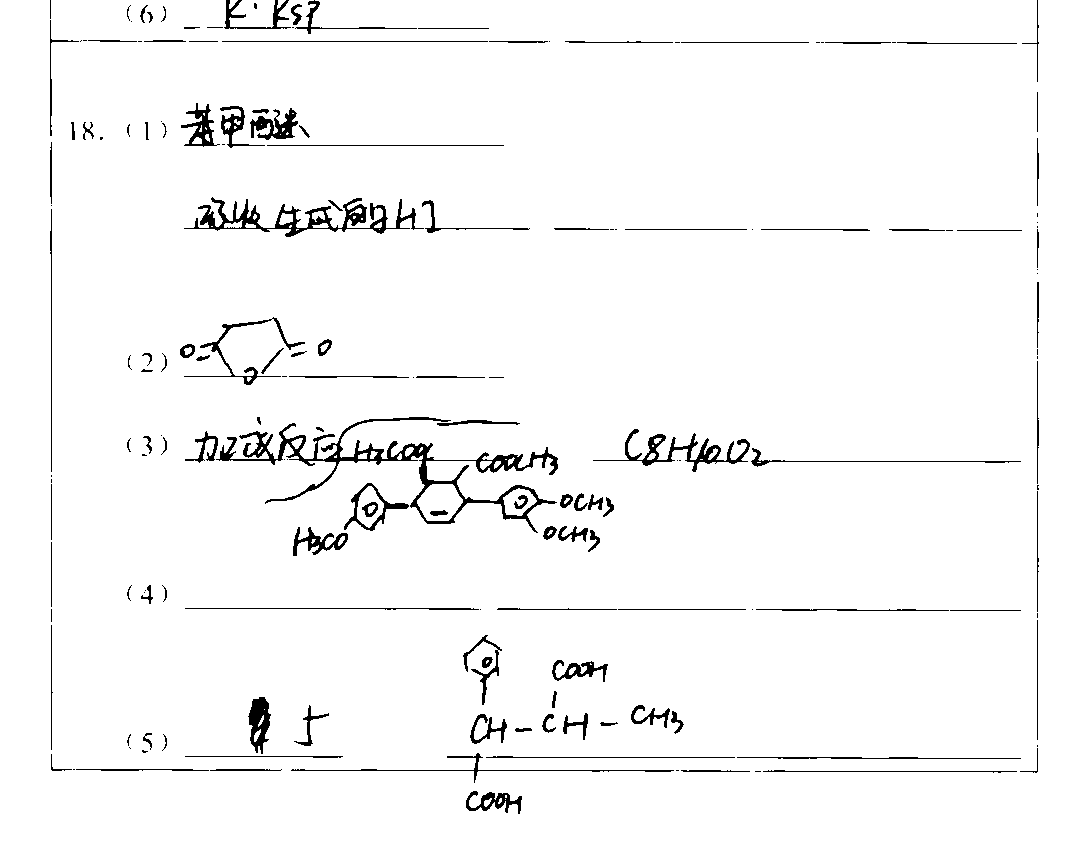 (6) K·Ksp
18. (1) 苯甲醚
吸收生成的HI
(2) O= O =O
(3) 加成反应 C8H10O2
H3COOC COOCH3
OCH3
H3CO OCH3
(4)
COOH
(5) 5 CH-CH-CH3
COOH